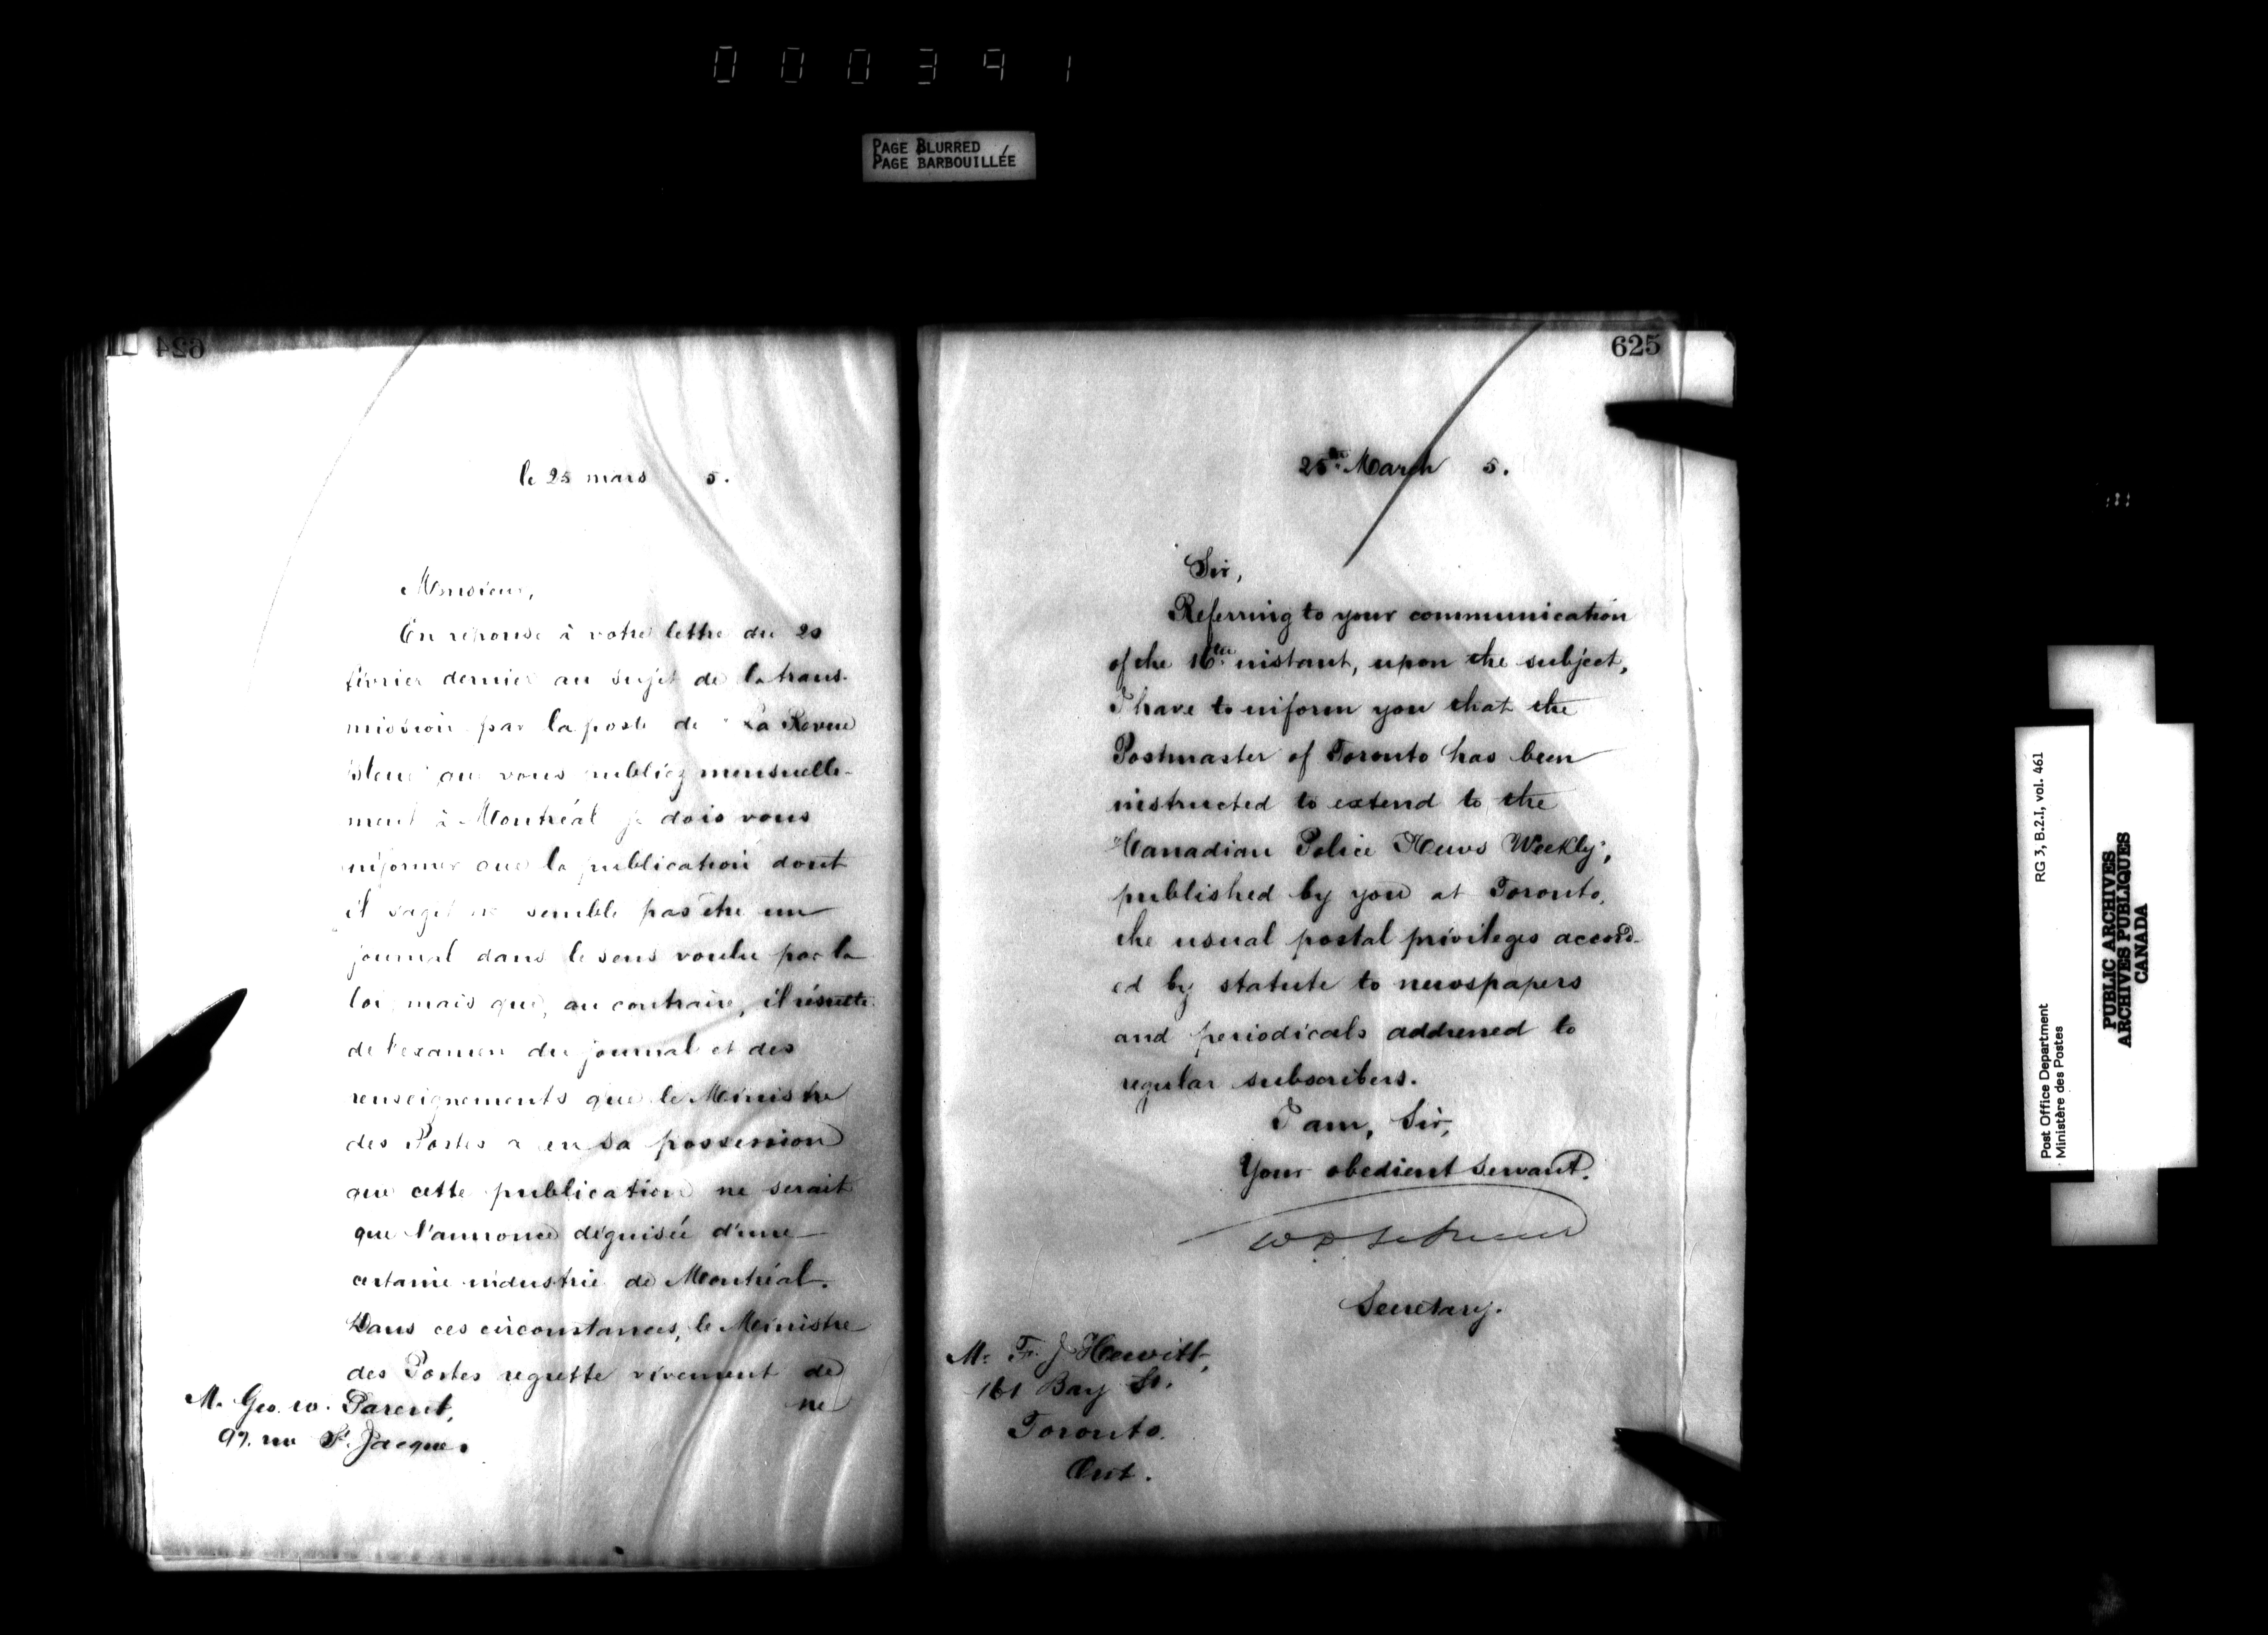 000391
PAGE BLURRED
PAGE BARBOUILLÉE
624
le 25 mars 5.
Monsieur,
En réponse à votre lettre du 20
février dernier au sujet de la trans-
mission par la poste de "La Revue
bleue" que vous publiez mensuelle-
ment à Montréal je dois vous
informer que la publication dont
il s'agit ne semble pas être un
journal dans le sens voulu par la
loi, mais que, au contraire, il résulte
de l'examen du journal et des
renseignements que le Ministre
des Postes a en sa possession
que cette publication ne serait
que l'annonce déguisée d'une
certaine industrie de Montréal.
Dans ces circonstances, le Ministre
des Postes regrette vivement de
ne
M. Geo. W. Parent,
97, rue St. Jacques
625
25th March 5.
Sir,
Referring to your communication
of the 16th instant, upon the subject,
I have to inform you that the
Postmaster of Toronto has been
instructed to extend to the
"Canadian Police News Weekly",
published by you at Toronto,
the usual postal privileges accord-
ed by statute to newspapers
and periodicals addressed to
regular subscribers.
I am, Sir,
Your obedient servant.
Secretary.
Mr. F. J. Hewitt,
161 Bay St.
Toronto.
Ont.
Post Office Department
Ministère des Postes
RG 3, B.2.I, vol. 461
PUBLIC ARCHIVES
ARCHIVES PUBLIQUES
CANADA